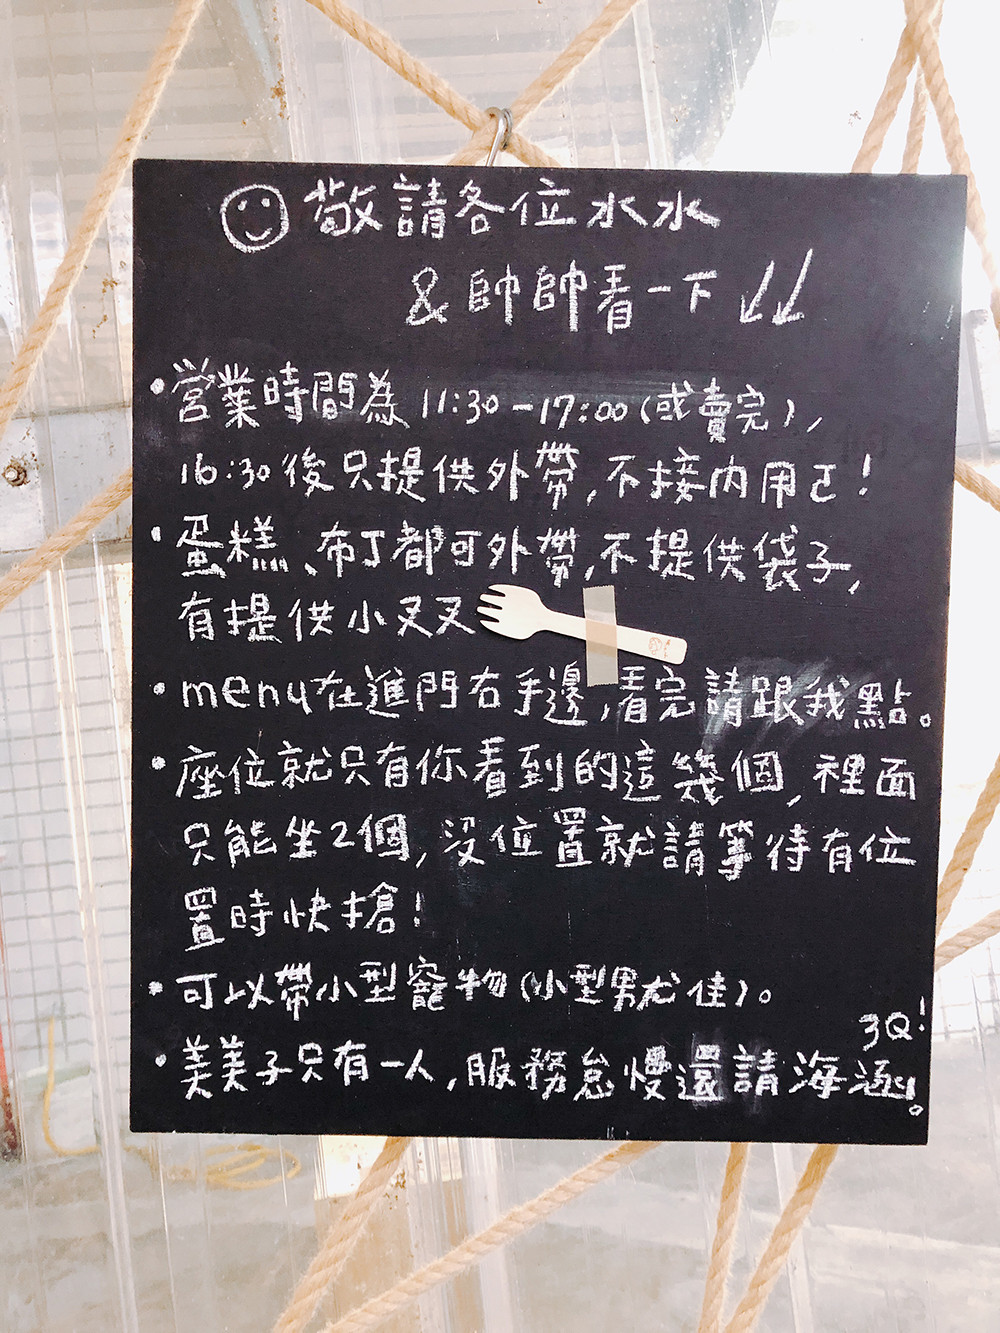 敬請各位水水
&帥帥看一下↓↓
•営業時間為11:30-17:00(或賣完),
16:30後只提供外帶,不接內用ㄛ!
•蛋糕、布丁都可外帶,不提供袋子,
有提供小叉叉
•menu在進門右手邊,看完請跟我點。
•座位就只有你看到的這幾個,裡面
只能坐2個,沒位置就請等待有位
置時快搶!
•可以帶小型寵物(小型男尤佳)。
3Q!
•美美子只有一人,服務怠慢還請海涵。